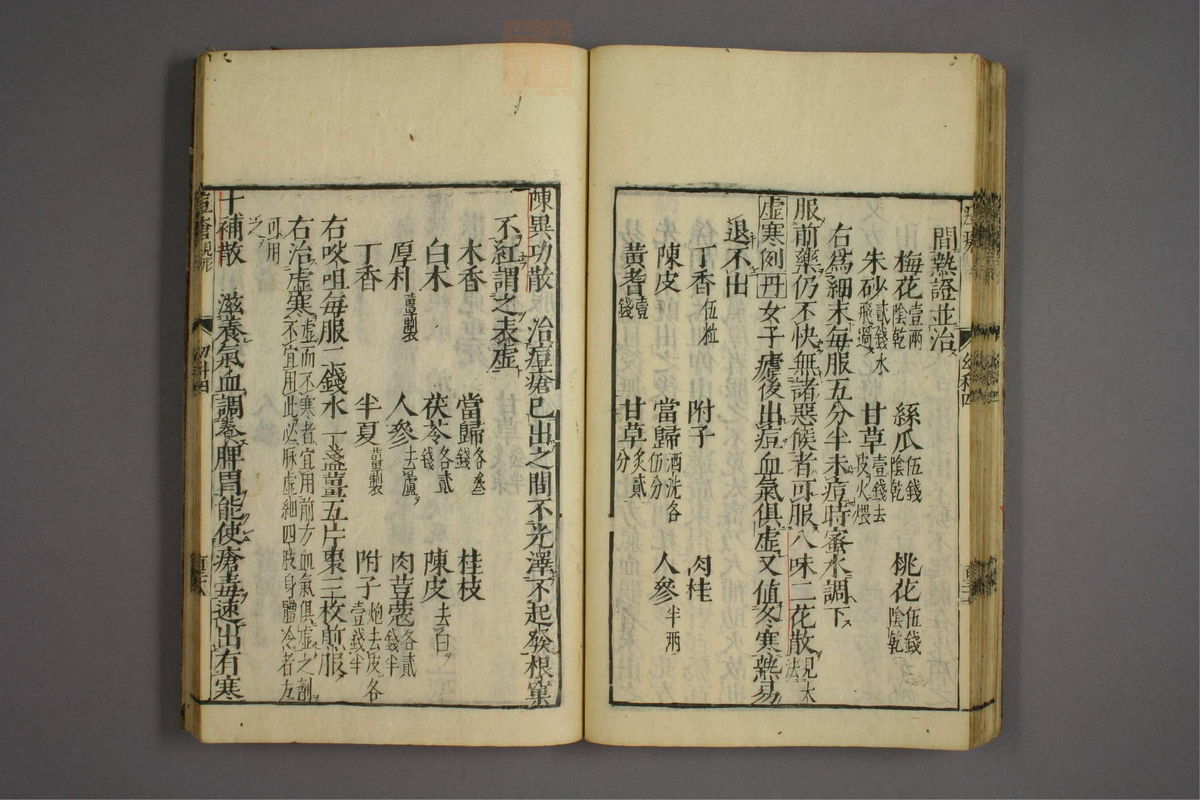 間熱證並治
梅花壹兩陰乾 絲瓜伍錢陰乾 桃花伍錢陰乾
朱砂貳錢水飛過 甘草壹錢去皮火煨
右爲細末每服五分半未痘時蜜水調下
服前藥仍不快無諸惡候者可服八味二花散
虛寒例丹女子瘧後出痘血氣俱虛又値冬寒熱易
退不出
丁香伍粒 附子 肉桂
陳皮 當歸酒洗各伍分 人參半兩
黃耆壹錢 甘草炙貳分
陳異功散 治痘瘡已出之間不光澤不起發根窠
不紅謂之表虛
木香 當歸各叁錢 桂枝
白术 茯苓各貳錢 陳皮去白
厚朴薑製 人參去蘆 肉荳蔻各貳錢半
丁香 半夏薑製 附子炮去皮各壹錢半
右㕮咀每服二錢水一盞薑五片棗三枚煎服
右治虛寒虛而不寒者宜用前方血氣俱虛之劑不宜用此必脉虛細四肢身體冷者方可用之
十補散 滋養氣血調養脾胃能使瘡毒速出有寒